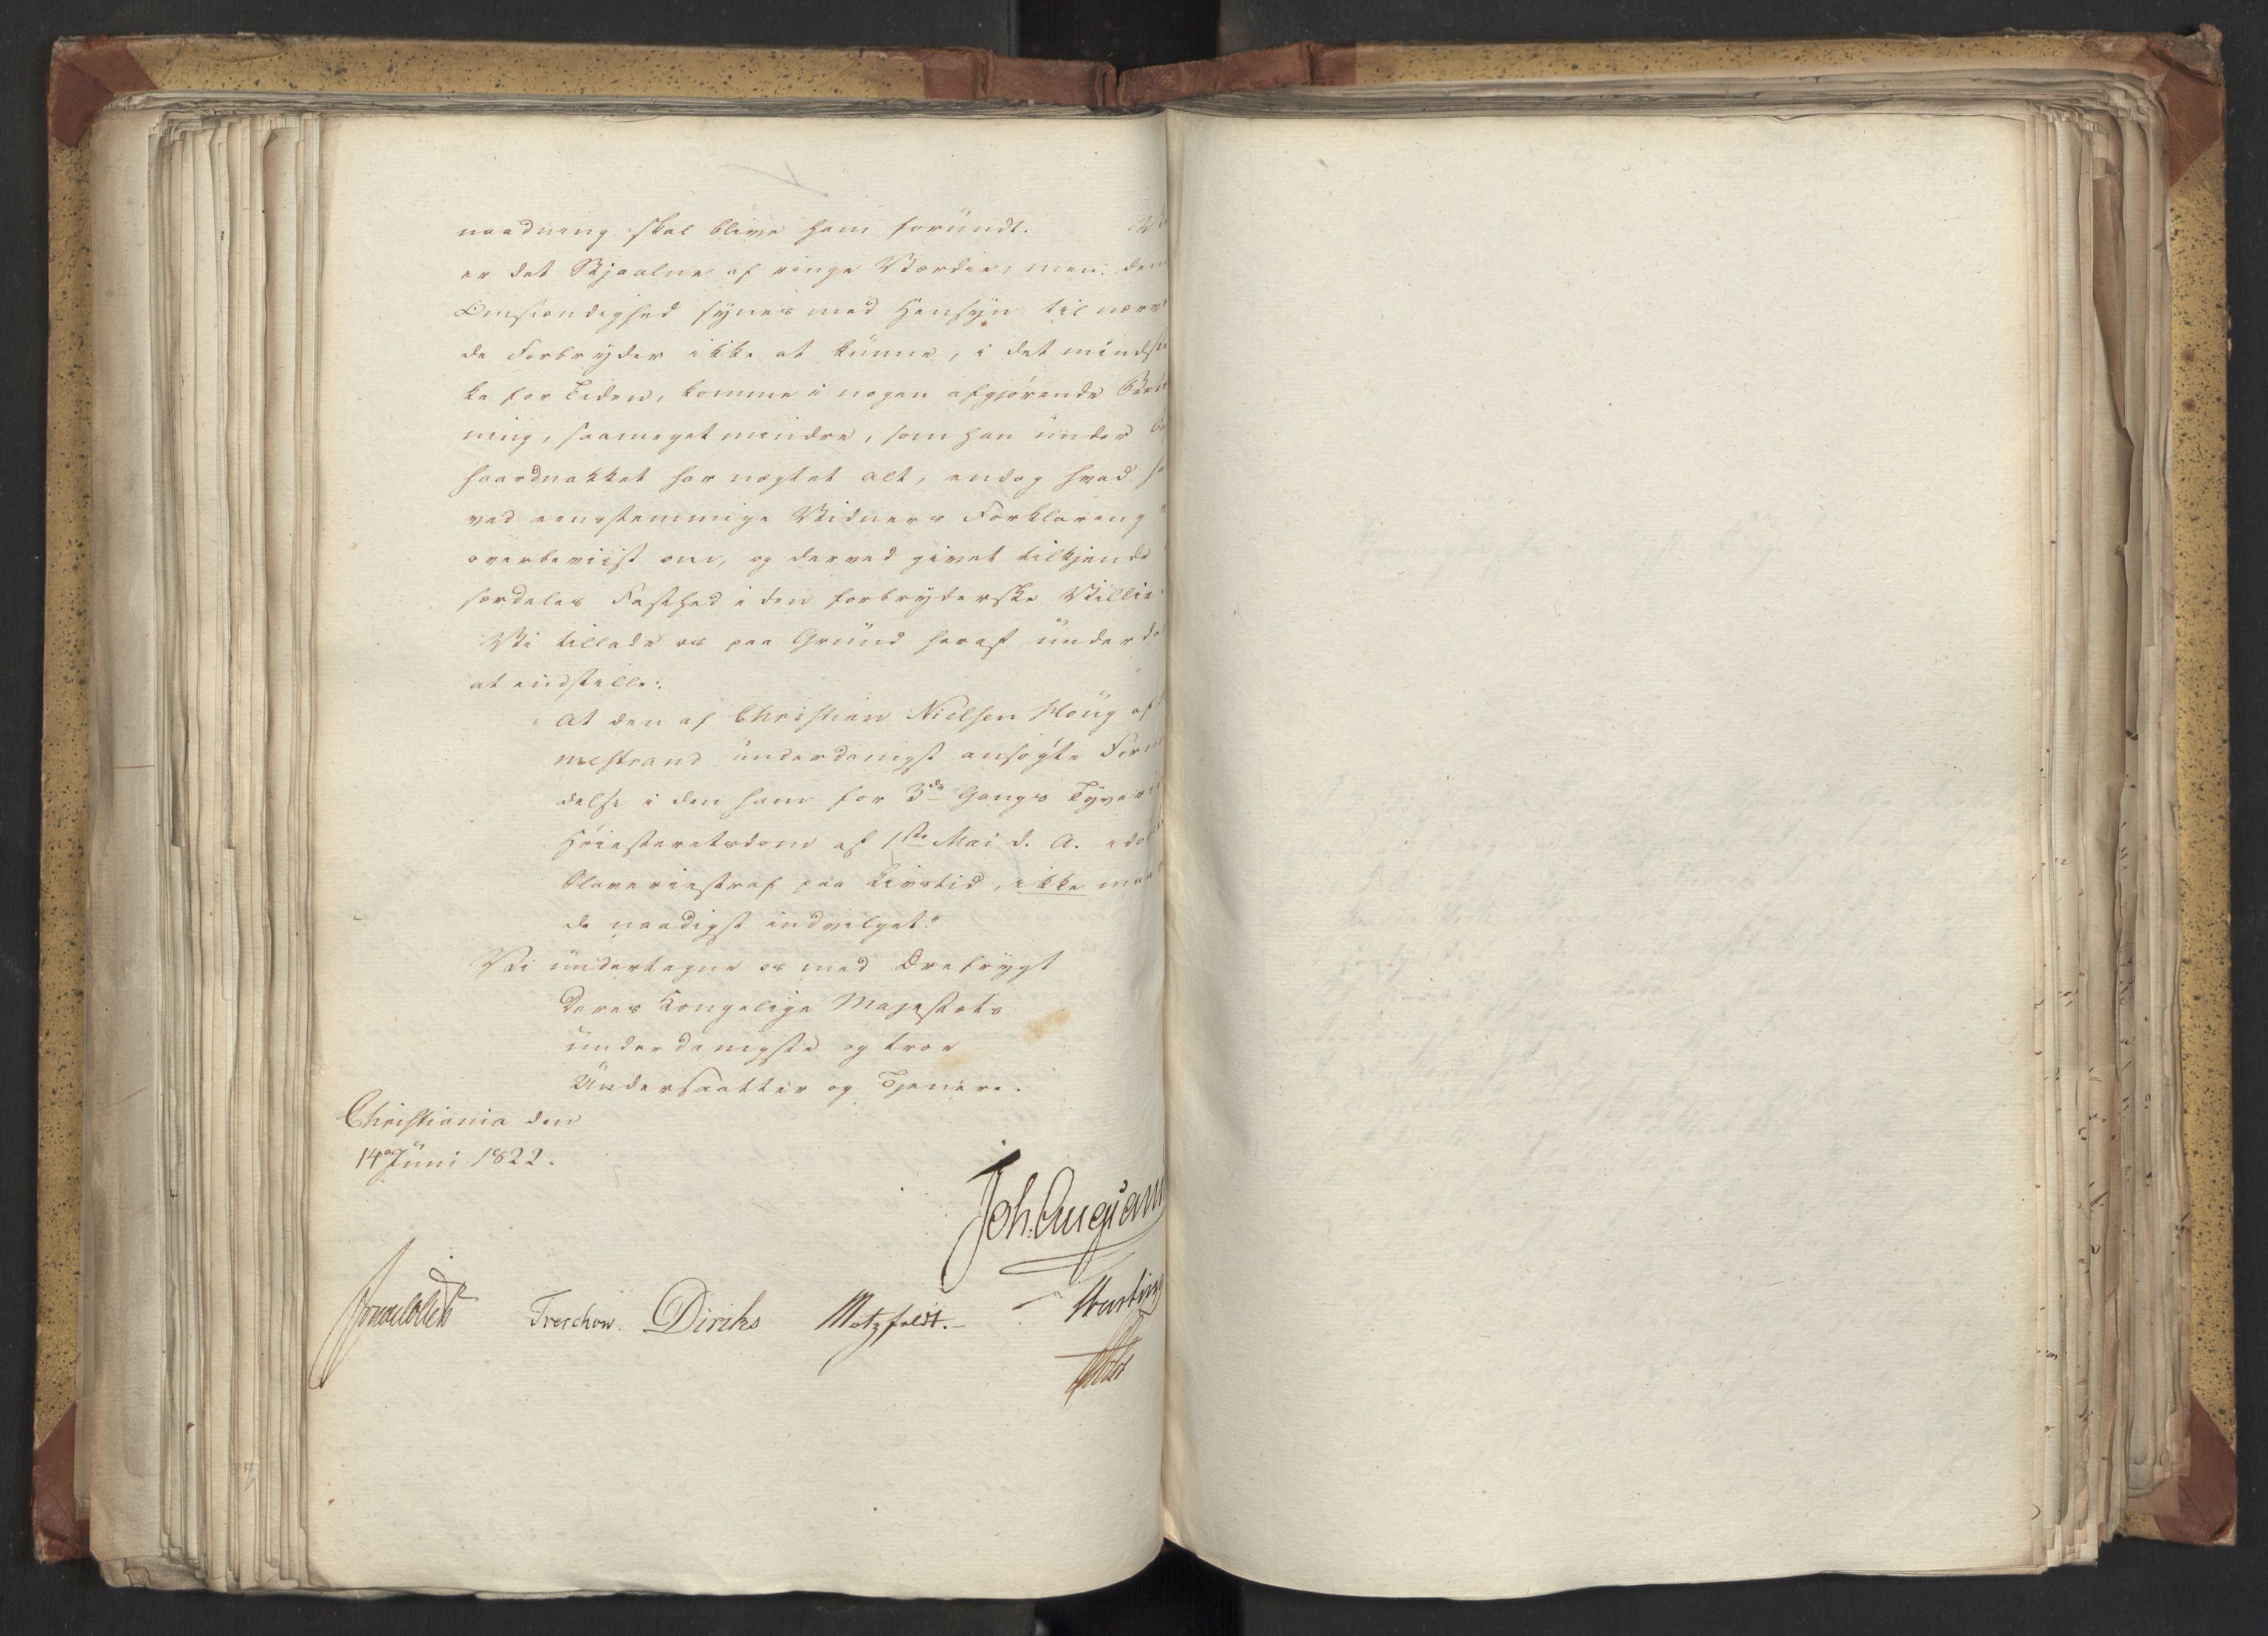 naadning skal blive ham forundt.
er det Stjaalne af ringe Værdie, men den
Omstændighed synes med Hensyn til nærv
de Forbryder ikke at kunne, i det mindste
ke for Tiden, komme i nogen afgjørende Bet
ning, saameget mindre, som han under
haardnakket har nægtet alt, endog hvad
ved eenstemmige Vidners Forklaring
overbeviist om, og derved givet tilkjende
særdeles Fasthed i den forbryderske Villie
Vi tillade os paa Grund heraf underd
at indstille:
At den af Christian Nielsen Houg af
mestrand underdanigst ansøgte For
delse i den ham for 3de Gangs Tyveri
Høiesteretsdom af 1ste Mai d. A. idø
Slaveriestraf paa Livstid, ikke maa
de naadigst indvilget."
Vi undertegne os med Ærefrygt
Deres Kongelige Majestæts
underdanigste og troe
Undersaatter og Tjenere.
Christiania den
14de Juni 1822.
Joh. Aug. San
Jonas Collett Treschow. Diriks Motzfeldt.
Holst